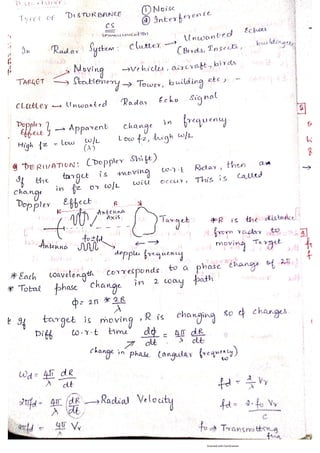 Types of DISTURBANCE ① Noise
② Interference
In Radar System: Clutter → Unwanted Echos
(Birds, Insects, buildings
TARGET → Moving → vehicles, aircraft, birds
→ Stationary → Tower, building etc,
Clutter → Unwanted Radar Echo signal
Doppler Effect } → Apparent change in frequency
High fz = low W/L (λ) Low fz, high W/L
DERIVATION: (Doppler Shift)
If the target is moving w.r.t Radar, then a
change in fz or W/L will occur. This is called
Doppler Effect
R
Antenna Axis
Target
*R is the distance
from radar to
moving Target
Antenna
fo±fd
doppler frequency
* Each wavelength corresponds to a phase change of 2π
* Total phase change in 2 way path
ϕ = 2π * 2R/λ
* If target is moving, R is changing so ϕ changes.
Diff w.r.t time dϕ/dt = 4π/λ dR/dt
change in phase (angular frequency) ω
Wd = 4π/λ dR/dt
fd = 2/λ Vr
2πfd = 4π/λ dR/dt → Radial Velocity
fd = 2·fo Vr/C
2πfd = 4π/λ Vr
fo → Transmitting
Scanned with CamScanner